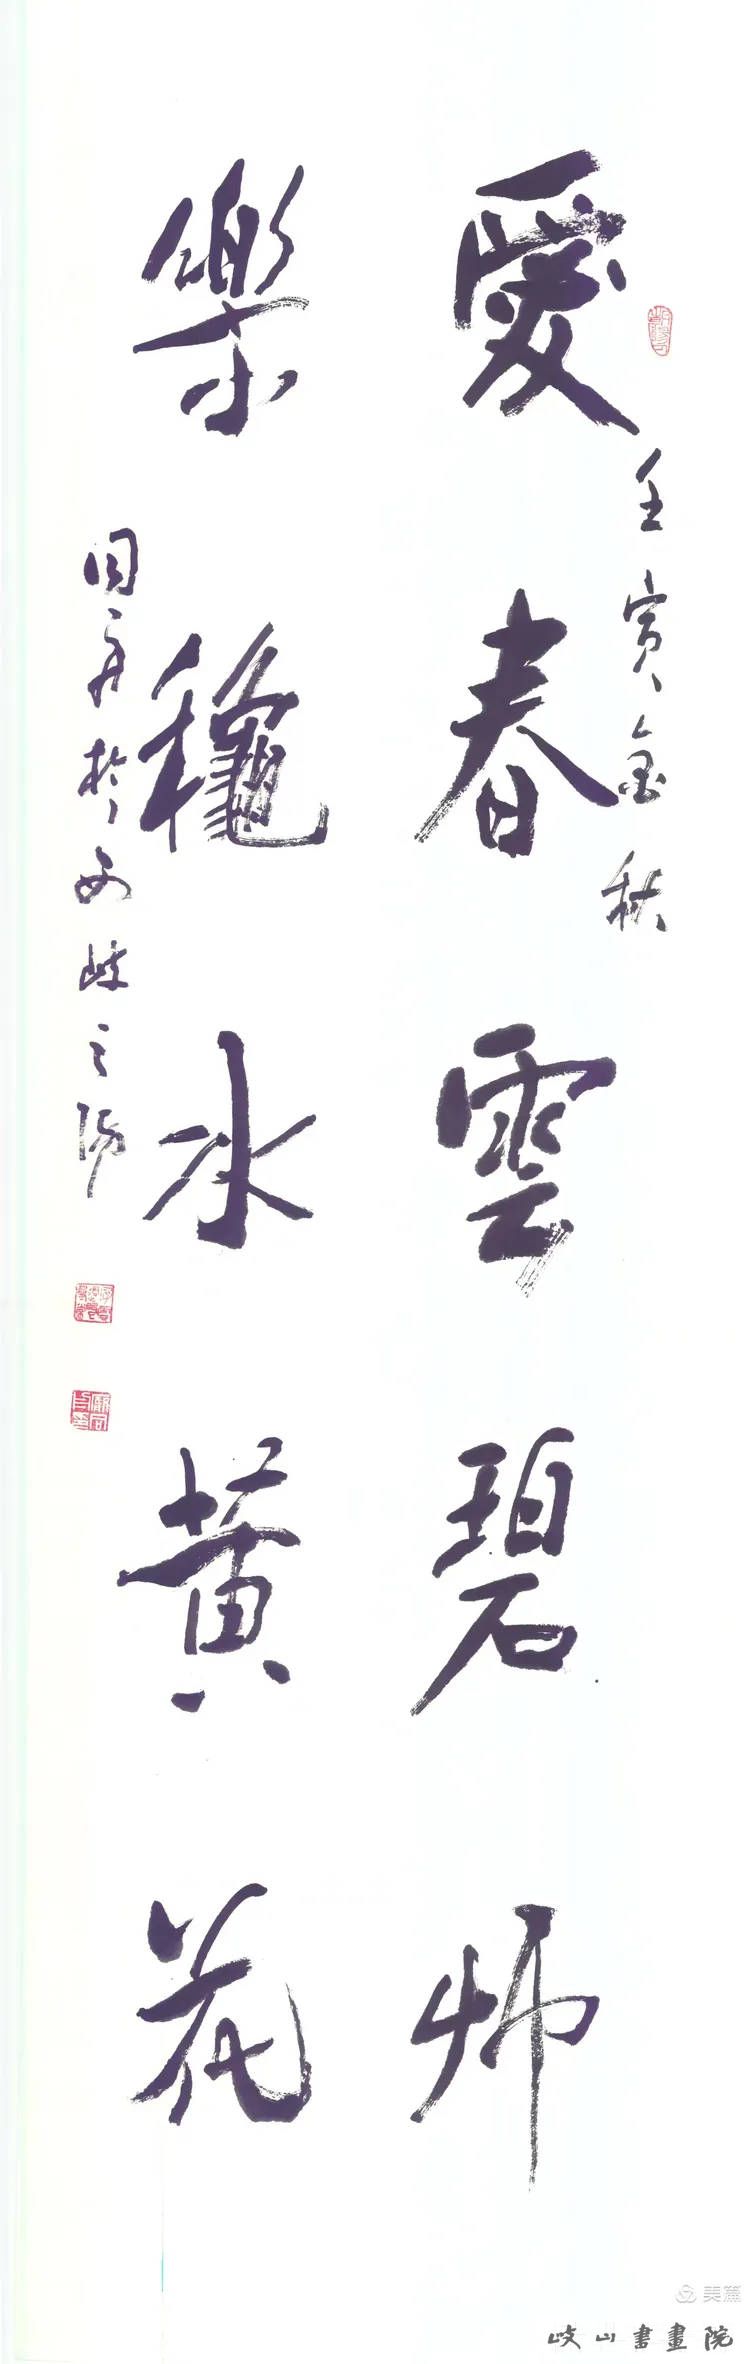 壬寅金秋
愛春雲碧艸
樂龝水黄花
同 於西岐之陽
美篇
岐山書畫院